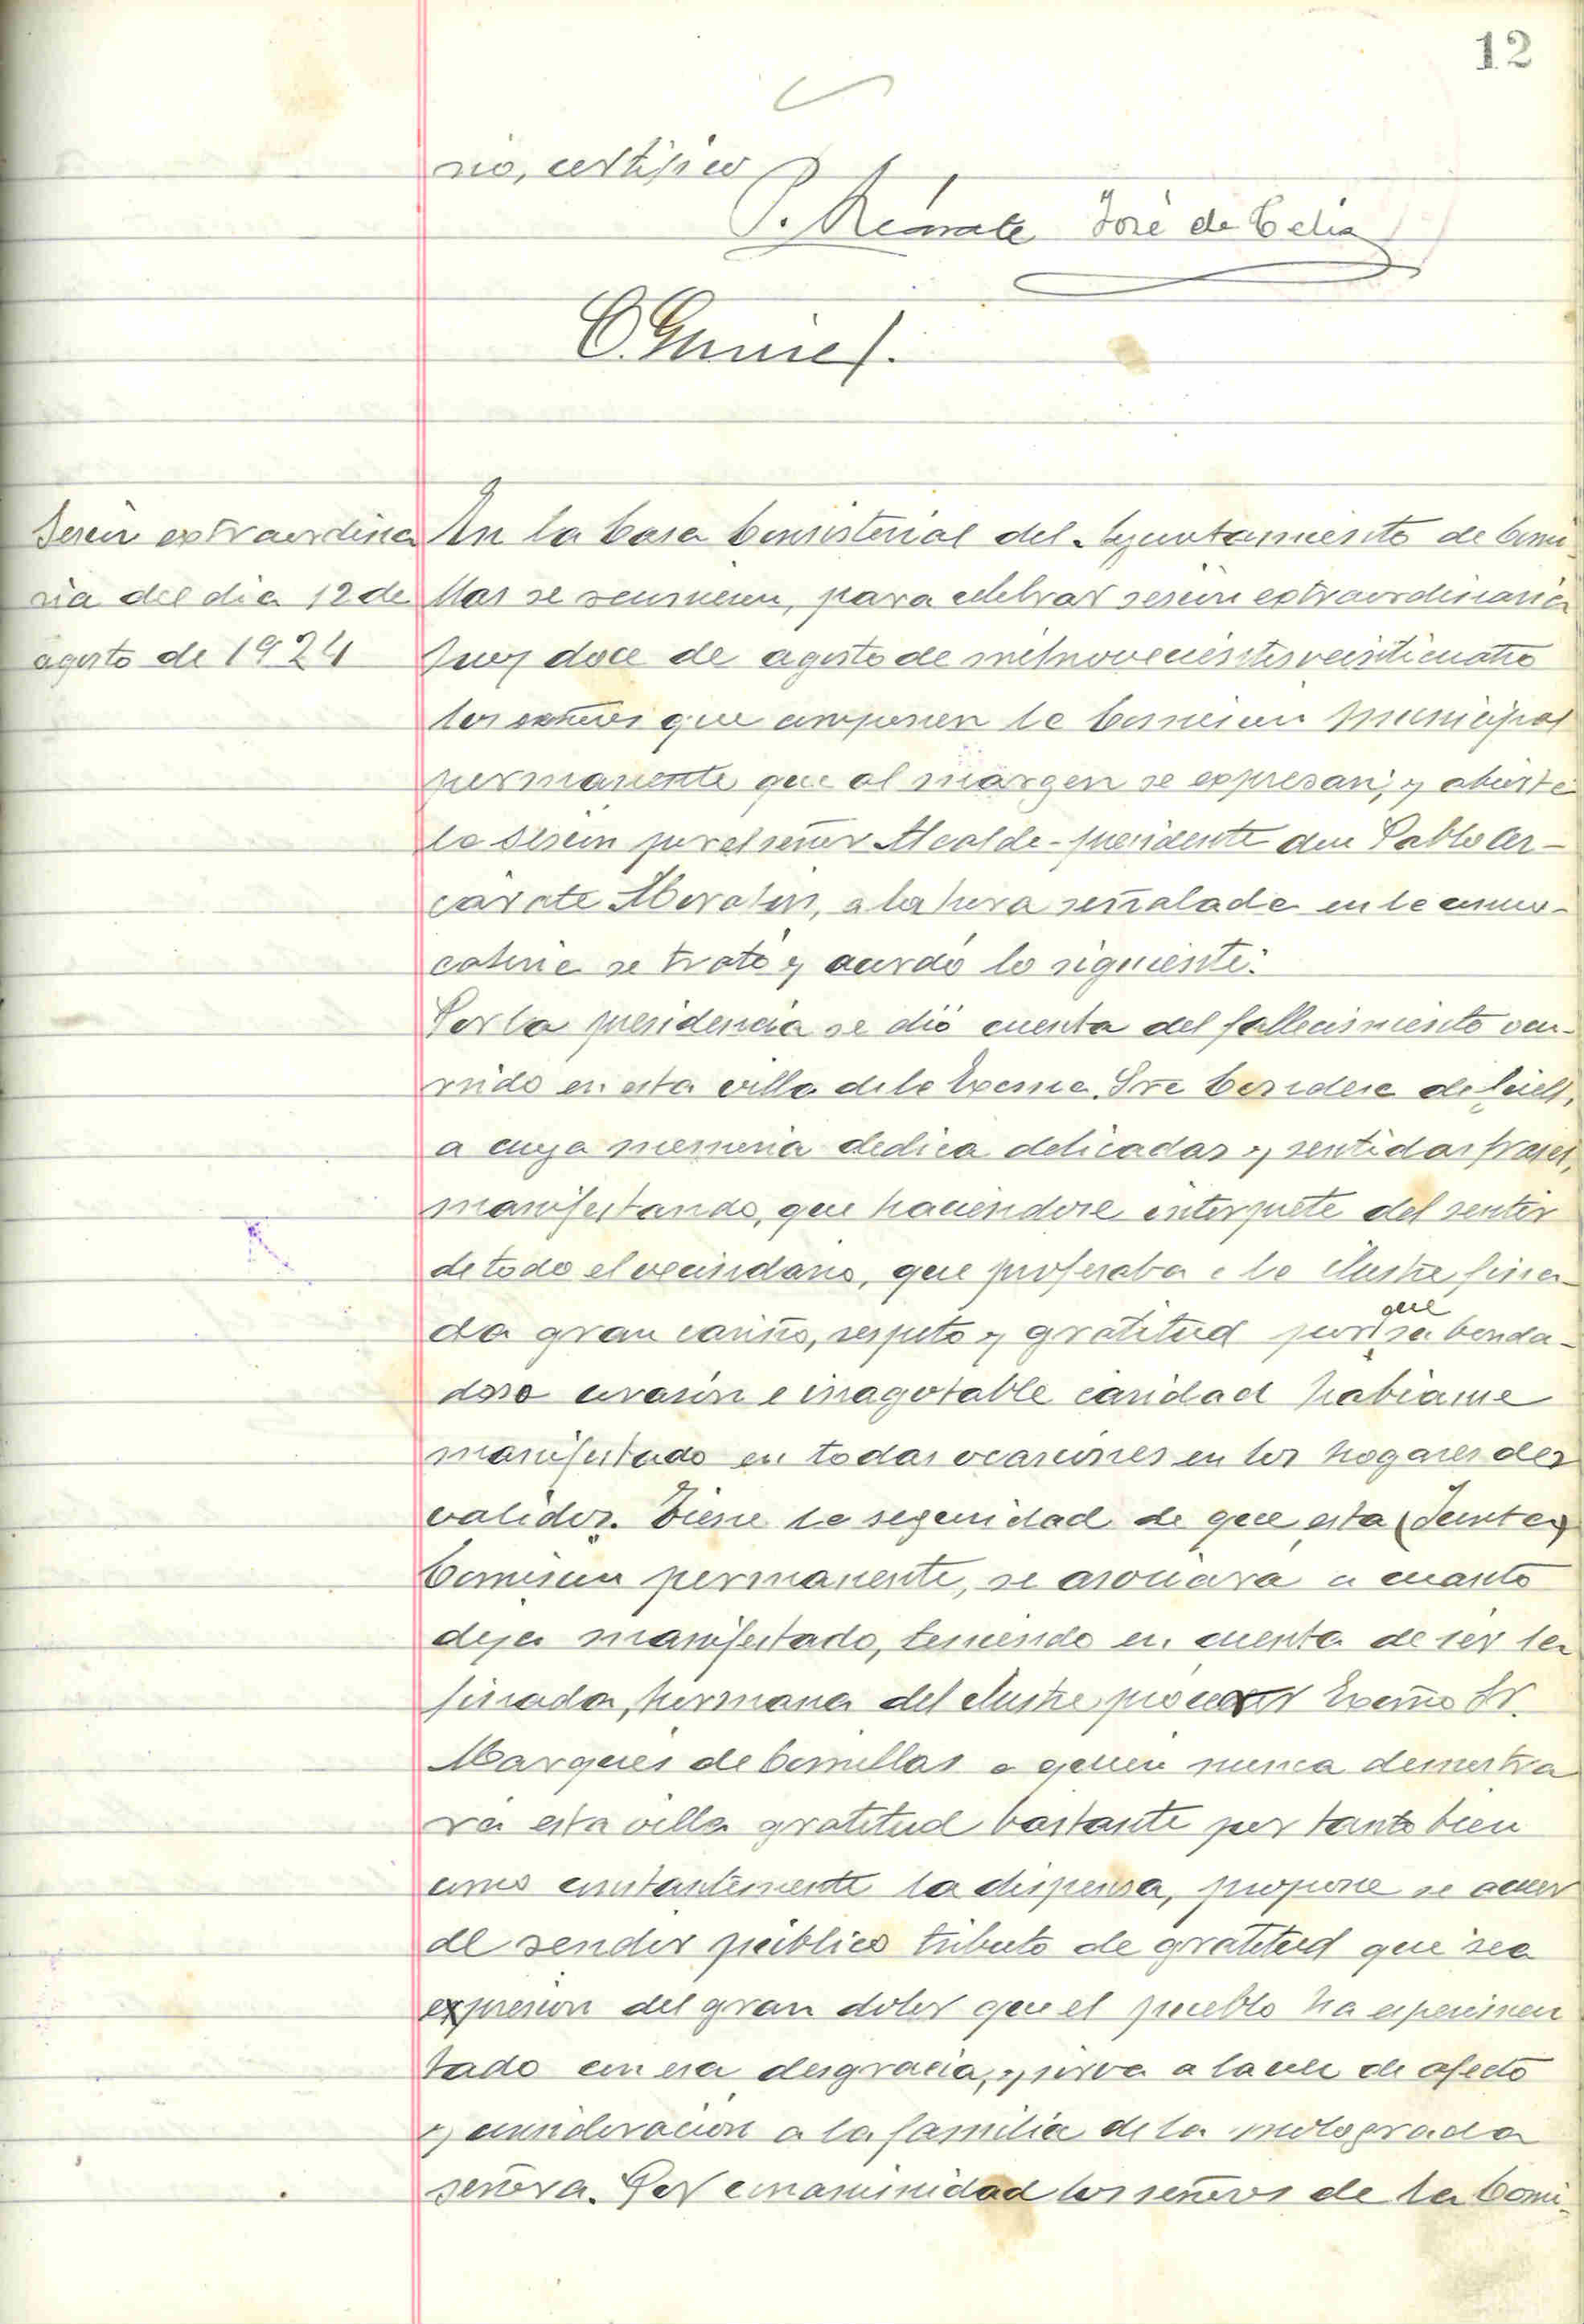 12
rio, certifico
P. Azcárate José de Celis
Sesión extraordina
ria del dia 12 de
agosto de 1924
En la Casa Consistorial del Ayuntamiento de Comi
llas se reunieron, para celebrar sesión extraordinaria
hoy doce de agosto de milnovecientosveinticuatro
los señores que componen la Comision Municipal
permanente que al margen se expresan; y abierta
la sesión por el señor Alcalde-presidente don Pablo Az-
cárate Abarategui, a la hora señalada en la convo-
catoria se trató y acordó lo siguiente:
Por la presidencia se dió cuenta del fallecimiento ocu-
rrido en esta villa de la Excma. Sra Condesa de Güell,
a cuya memoria dedica delicadas y sentidas frases,
manifestando, que haciendose interprete del sentir
de todo el vecindario, que profesaba a la ilustre fina-
da gran cariño, respeto y gratitud por que su bonda-
doso corazón e inagotable caridad habiame
manifestado en todas ocasiones en los hogares des
validos. Tiene la seguridad de que esta (Junta)
Comision permanente, se asociará a cuanto
deja manifestado, teniendo en cuenta de ser la
finada, hermana del ilustre prócer Excmo Sr.
Marqués de Comillas a quien nunca demostra
rá esta villa gratitud bastante por tanto bien
como constantemente la dispensa, propone se acuer
de rendir público tributo de gratitud que sea
expresion del gran dolor que el pueblo ha experimen
tado con esa desgracia, y sirva a la vez de afecto
y consideracion a la familia de la malograda
señora. Por unanimidad los señores de la Comi-